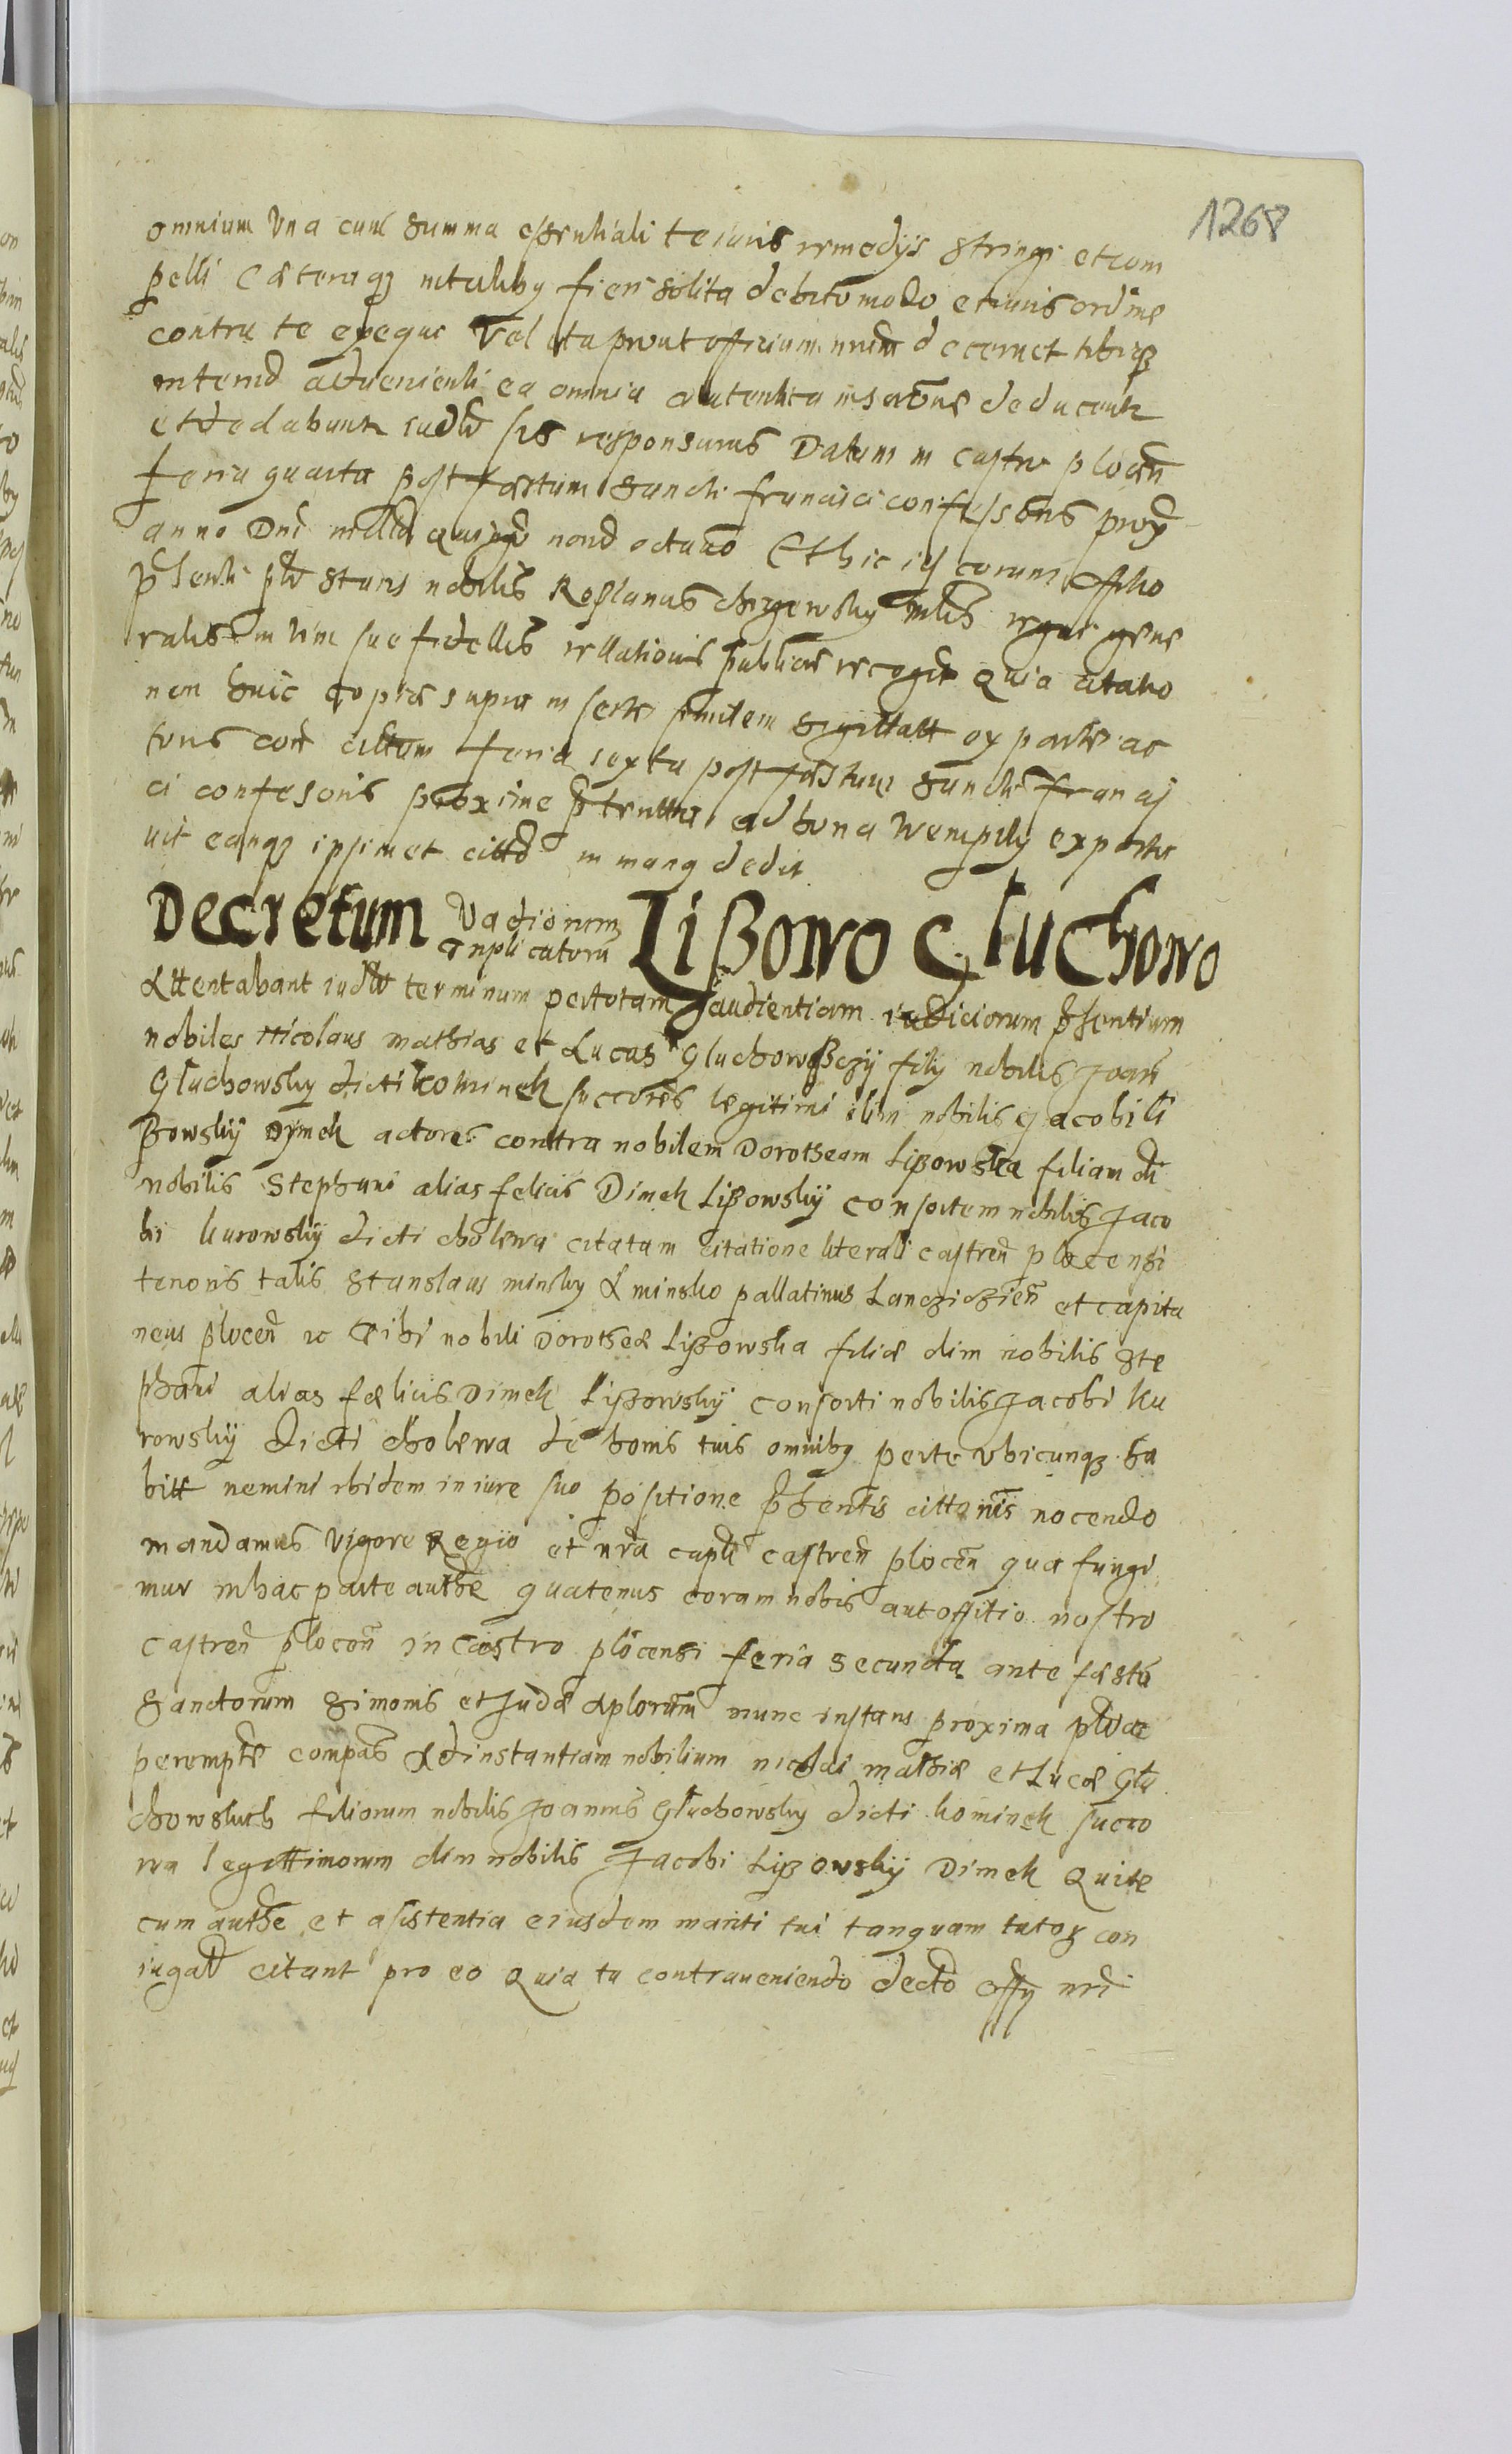 1268
omnium Una cum summa essentiali te iuris remedijs stringi et com
pelli Caeteraq3 intalibq fieri solita debito modo et iuris ordine
contra te exequi Vel ita prout officium nrum decernet tibiq3
interid advenienti ea omnia autentica insertione deducentr
et dedabuntr iudlr sis responsurus Datum in castro plocen
feria quarta post festum sancti francisci confessoris prox
anno Dni milld quingo nond octauo Et hic ij coram offitio
pŝenti plr stans nobilis Roslanus chrzewsky mlis regni gene
ralis in vim sue fidellis rellationis publicae recogt Quia citatio
nem huic copiae supra insertr similem sigillatt ex parte ac
toris con cittam feria sexta post festum sancti francis
ci confesoris proxime pteritta ad bona Wempily exporta
uit eamq3 ipsimet cittd in manq dedit
Decretum Vadiorum Lißowo Gluchowo
Triplicatoru
Attentabant iudlr terminum per totam audientiam iudiciorum pŝentium
nobiles Nicolaus mathias et Lucas Gluchowßczij filij nobilis Joan
Gluchowsky dicti kominek succores legitimi olim nobilis Jacobi Li
ßowskij Dymek actores contra nobilem Dorotheam Lißowska filiam oli
nobilis Stephani alias felicis Dimek Lißowskij consortem nobilis Jaco
bi kurowskij dicti cholewa citatam citatione literali castren plocensi
tenoris talis Stanslaus minsky A minsko pallatinus Lancziczien et capita
neus plocen rc Tibi nobili Dorotheae Lißowska filiae olim nobilis Ste
phani alias faelicis Dimek Lißowskij consorti nobilis Jacobi Ku
rowskij dicti cholewa de bonis tuis omnibq per te vbicunq3 ha
bitt nemini ibidem in iure suo positione pŝentis cittanis nocendo
mandamus Vigore Regio et nra capli castren plocen qua fungi
mur in hac parte authe quatenus coram nobis aut offitio nostro
castren plocen in Castro plocensi feria secunda ante festu
sanctorum Simonis et Judae Aplorum nunc instans proxima plr ac
perempte compas Ad instantiam nobilium nicolai mathiae et Lucae Glu
chowskich filiorum nobilis Joannis Gluchowsky dicti kominek succo
rum legittimorum olim nobilis Jacobi Lißowskij Dimek Qui te
cum authe et asistentia eiusdem mariti tui tanquam tutoris con
iugal citant pro eo Quia tu contraueniendo decto offij nri